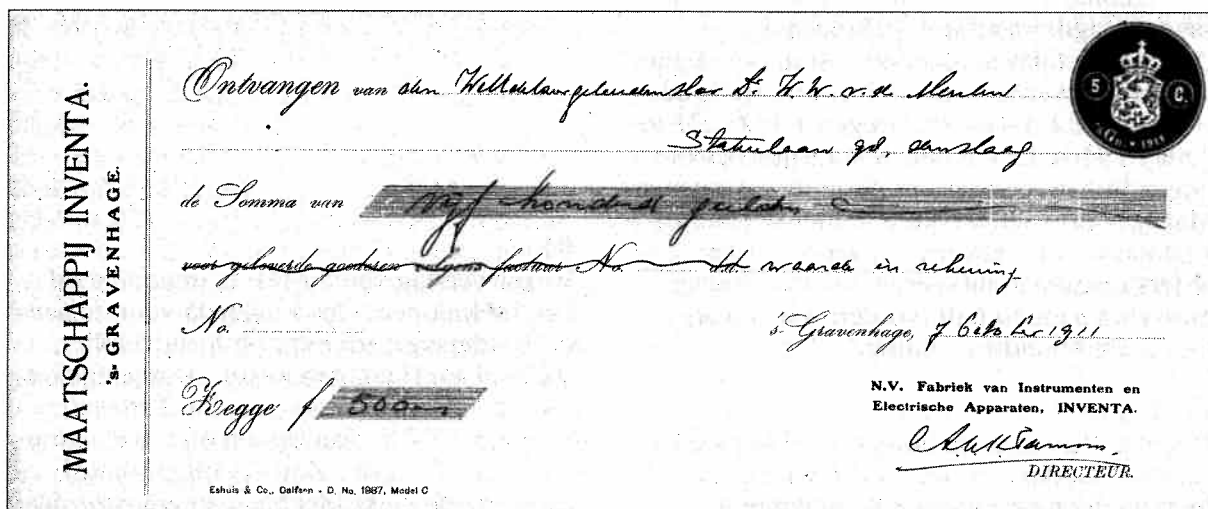 MAATSCHAPPIJ INVENTA.
's-GRAVENHAGE.
Ontvangen van den Dr. W. v. de Meulen
Statenlaan
de Somma van vijf honderd gulden
voor geleverde goederen volgens factuur No. dd. waarde in rekening
No. 's Gravenhage, 7 October 1911
Zegge f 500
N.V. Fabriek van Instrumenten en
Electrische Apparaten, INVENTA.
DIRECTEUR.
Eshuis & Co., Dalfsen - D. No. 1987, Model C
5 C.